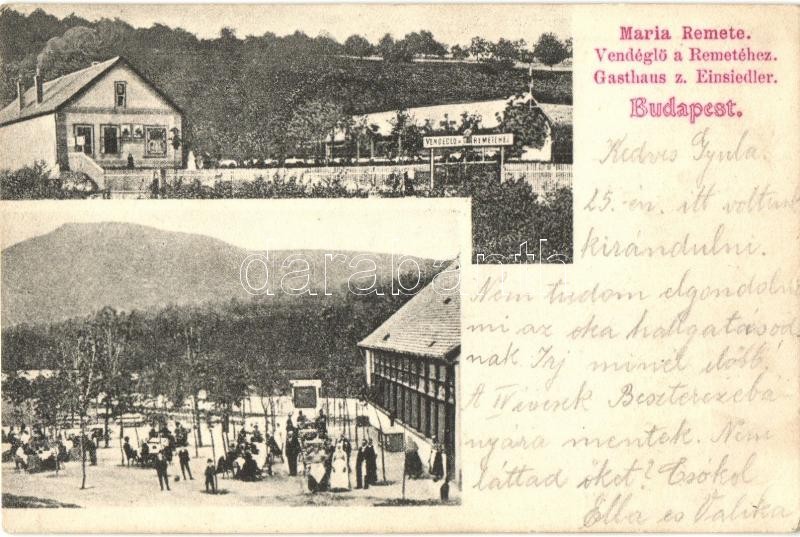 Maria Remete.
Vendéglö a Remetéhez.
Gasthaus z. Einsiedler.
Budapest.
VENDÉGLŐ A REMETÉHEZ
Kedves Gyula.
25.-én itt voltunk
kirándulni.
Nem tudom elgondolni
mi az oka hallgatásod
nak Irj minél előbb.
A IVivesek Beszterczebá-
nyára mentek. Nem
láttad őket? Csókol
Ella és Valika
darabanth